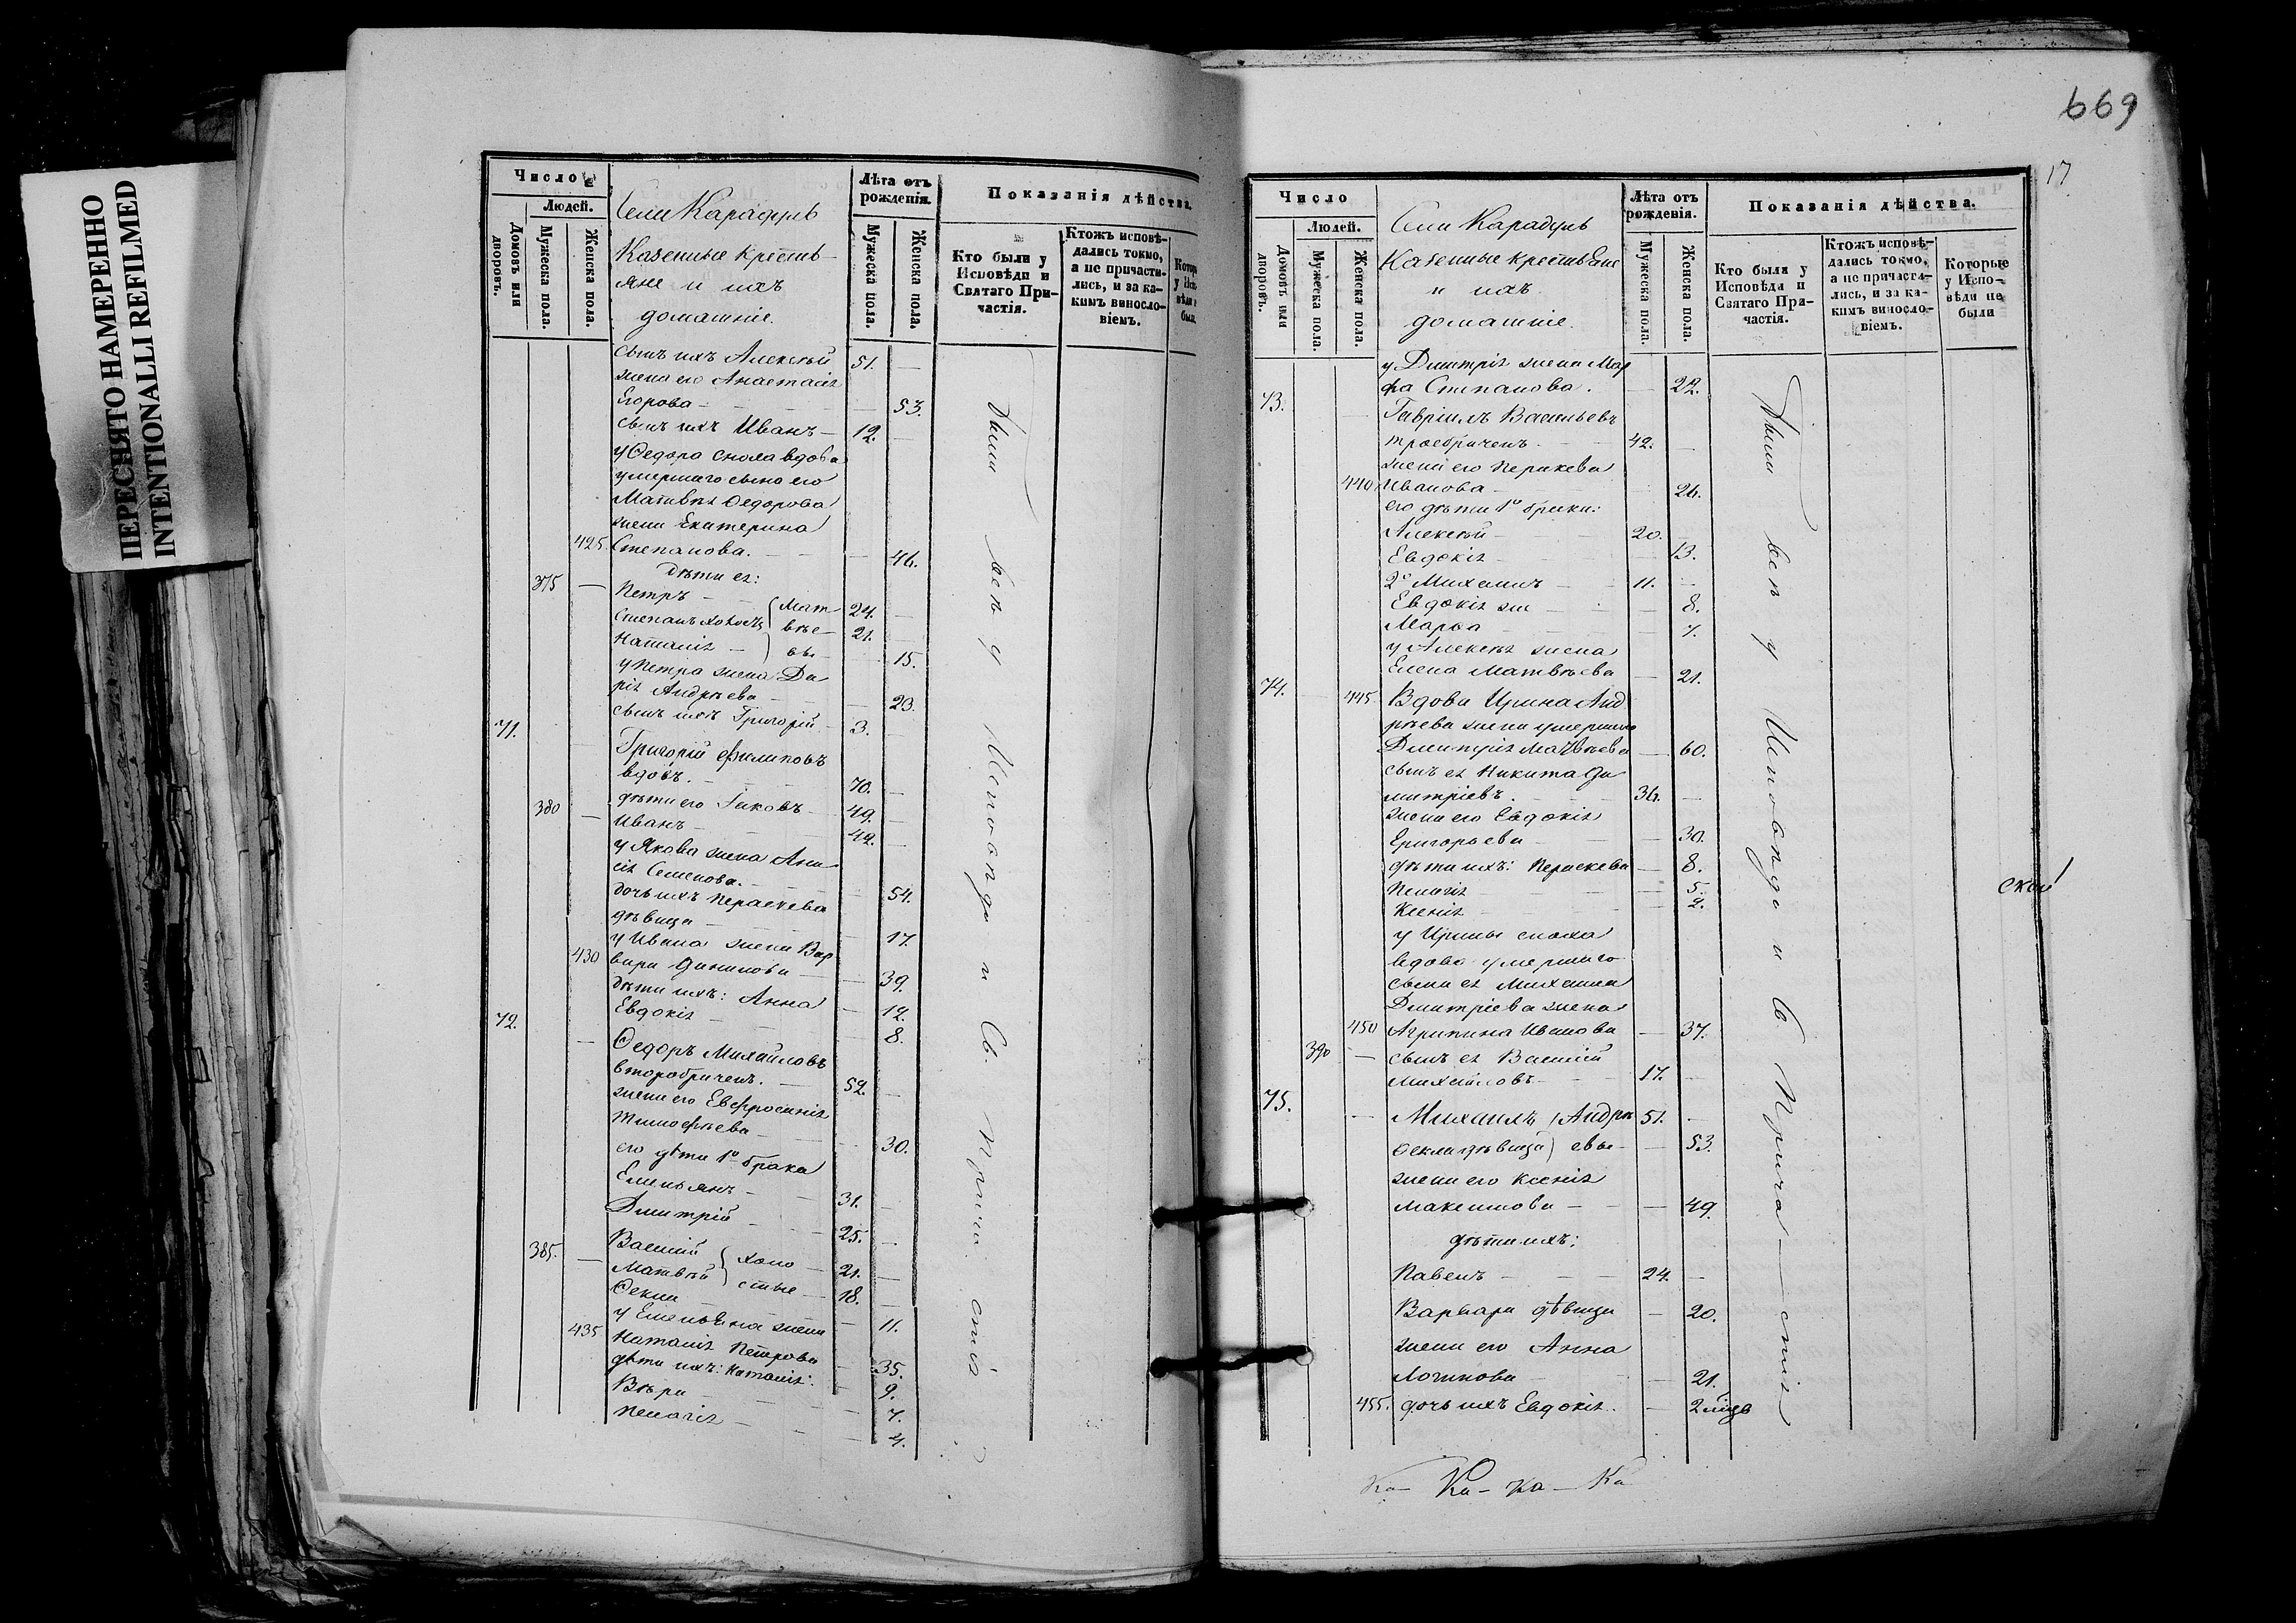 ПЕРЕСНЯТО НАМЕРЕННО
INTENTIONALLI REFILMED
Число
Людей.
Домовъ или дворовъ.
Мужеска пола.
Женска пола.
Села Карадуль
Казенные крестья-
яне и ихъ
домашніе.
Лѣта отъ рожденія.
Мужеска пола.
Женска пола.
Показанія дѣйства.
Кто были у Исповѣди и Святаго При-
частія.
Ктожъ исповѣ-
дались токмо,
а не причасти-
лись, и за ка-
кимъ винословіемъ.
сынъ ихъ Алексѣй 51. —
жена его Анастасія
Егорова — — 53.
сынъ ихъ Иванъ — 12. —
у Ѳедора сноха вдова
умершаго сына его
Матвѣя Ѳедорова
жена Екатерина
425. Степанова. — — 46.
дѣти ея:
375 — Петръ — Мат 24. —
Степанъ холостъ вѣе 21. —
Наталія — вы — 15.
у Петра жена Да
рія Андрѣева — — 23.
сынъ ихъ Григорій 3. —
71. Григорій Филиповъ
вдовъ. — 70. —
380 — дѣти его Іаковъ 49. —
Иванъ — 42. —
у Якова жена Ани
сія Семенова. — — 54.
дочь ихъ Пераскева
дѣвица — — 17.
у Ивана жена Вар
430 вара Данилова — — 39.
дѣти ихъ: Анна — 12.
Евдокія — — 8.
72. — Ѳедоръ Михайловъ
второбрачен. — 52. —
жена его Евфросинія
Тимофѣева — — 30.
его дѣти 1го брака
Емельянъ — 31. —
Дмитрій — 25. —
385. — Василій холо 21. —
Матвѣй стые 18. —
Ѳекла — — 11.
у Емельяна жена
435 Наталія Петрова — 35.
дѣти ихъ: Наталія: — 9.
Вѣра — — 7.
Пелагія — — 4.
Были всѣ у Исповѣди и Св. Причастія
669
17
Число
Людей.
Домовъ или дворовъ.
Мужеска пола.
Женска пола.
Села Карадуль
Казенные крестьяне
и ихъ
домашніе.
Лѣта отъ рожденія.
Мужеска пола.
Женска пола.
Показанія дѣйства.
Кто были у Исповѣди и Святаго При-
частія.
Ктожъ исповѣ-
дались токмо,
а не причасти-
лись, и за ка-
кимъ винословіемъ.
Которые
у Испо-
вѣди не
были
у Дмитрія жена Мар
фа Степанова. — 22.
73. — Гавріилъ Васильевъ
троебрачен. — 42. —
жена его Пераскева
440 Иванова — — 26.
его дѣти 1го брака:
Алексѣй — 20. —
Евдокія — — 13.
2го Михаилъ — 11. —
Евдокія — — 8.
Марѳа — — 7.
у Алексѣя жена
Елена Матвѣева — 21.
74. 445. Вдова Ирина Анд
рѣева жена умершаго
Дмитрія Матвѣева — 60.
сынъ ея Никита Ди
митріевъ. — 36. —
жена его Евдокія
Григорьева — — 30.
дѣти ихъ: Пераскева — 8.
Пелагія — — 5.
Ксенія — — 2.
у Ирины сноха
вдова умершаго
сына ея Михаила
Дмитріева жена
450 Агрипина Иванова — 37.
390 — сынъ ея Василій
Михайловъ — 17. —
75. — Михаилъ Андрѣ 51. —
Ѳекла дѣвица евы — — 53.
жена его Ксенія
Максимова — — 49.
дѣти ихъ:
Павелъ — 24. —
Варвара дѣвица — 20.
жена его Анна
Логинова — 21.
455. дочь ихъ Евдокія. —
Были всѣ у Исповѣди и Св. Прича — стія
ской
Ка — Ка — ка — Ка